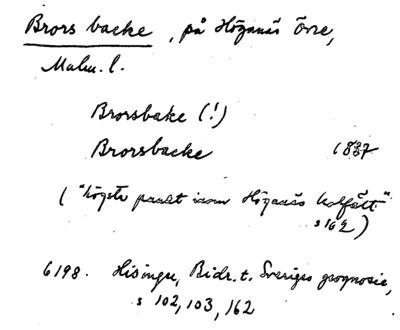 Brors backe, på Höganäs Övre,
Malm. l.
Brorsbake (!)
Brorsbacke 1837
("högsta punkt inom Höganäs kolfält"
s 162)
6198. Hisinger, Bidr. t. Sveriges geognosie,
s 102, 103, 162